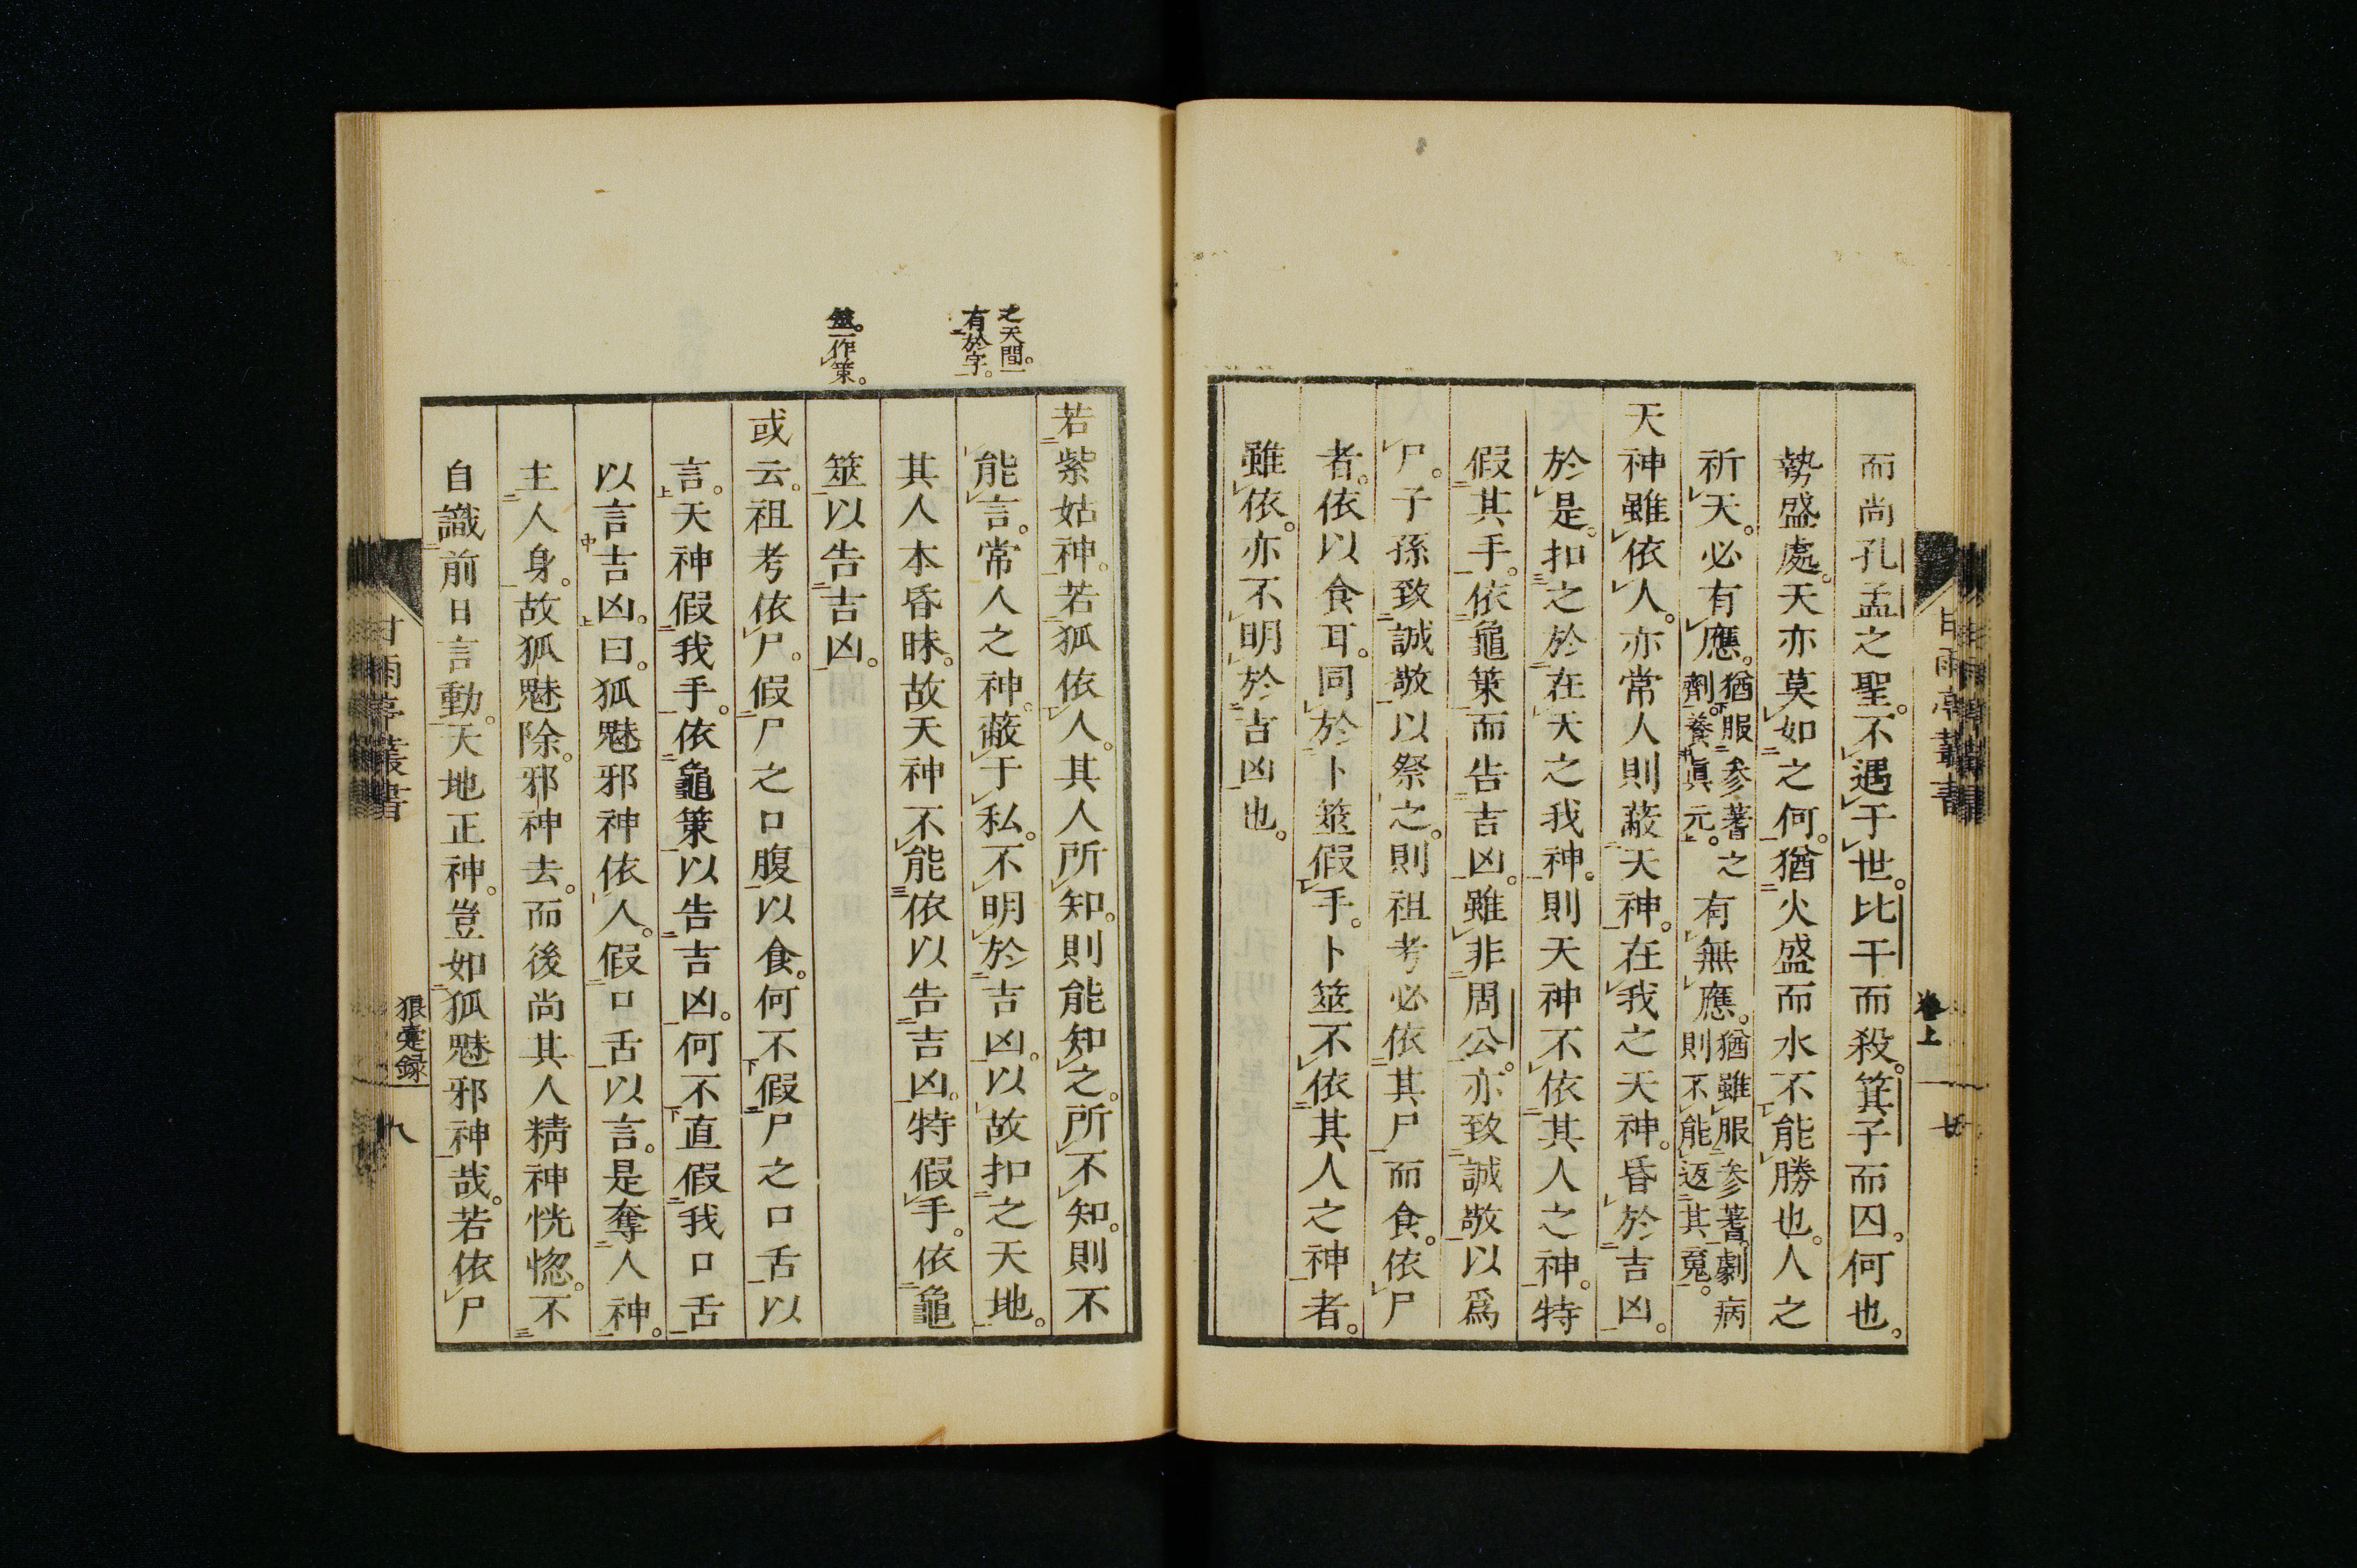 而尚孔孟之聖。不遇于世。比干而殺。箕子而囚。何也。
勢盛處。天亦莫如之何。猶火盛而水不能勝也。人之
祈天。必有應。猶服參蓍之劑。養眞元。有無應。猶雖服參蓍。劇病則不能返其冤。
天神雖依人。亦常人則蔽天神。在我之天神。昏於吉凶。
於是。扣之於在天之我神。則天神不依其人之神。特
假其手。依龜筴而告吉凶。雖非周公。亦致誠敬以爲
尸。子孫致誠敬以祭之。則祖考必依其尸而食。依尸
者。依以食耳。同於卜筮假手。卜筮不依其人之神者。
雖依。亦不明於吉凶也。
卷上
廿
之天間。一
有於字。
筮。一作筴。
若紫姑神。若狐依人。其人所知。則能知之。所不知。則不
能言。常人之神。蔽于私。不明於吉凶。以故扣之天地。
其人本昏昧。故天神不能依以告吉凶。特假手。依龜
筮以告吉凶。
或云。祖考依尸。假尸之口腹以食。何不假尸之口舌以
言。天神假我手。依龜筴以告吉凶。何不直假我口舌
以言吉凶。曰。狐魅邪神依人。假口舌以言。是奪人神。
主人身。故狐魅除。邪神去。而後尚其人精神恍惚。不
自識前日言動。天地正神。豈如狐魅邪神哉。若依尸
甘雨亭叢書
狼疐録
九